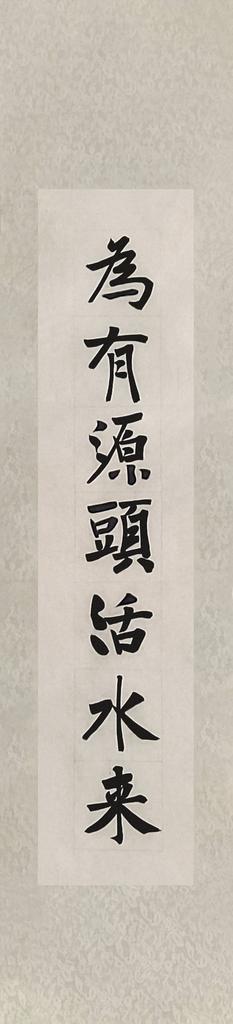 為有源頭活水来